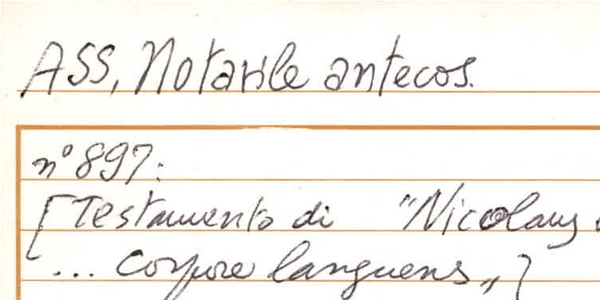 ASS, Notarile antecos.
n° 897:
[Testamento di "Nicolaus
... corpore languens„]